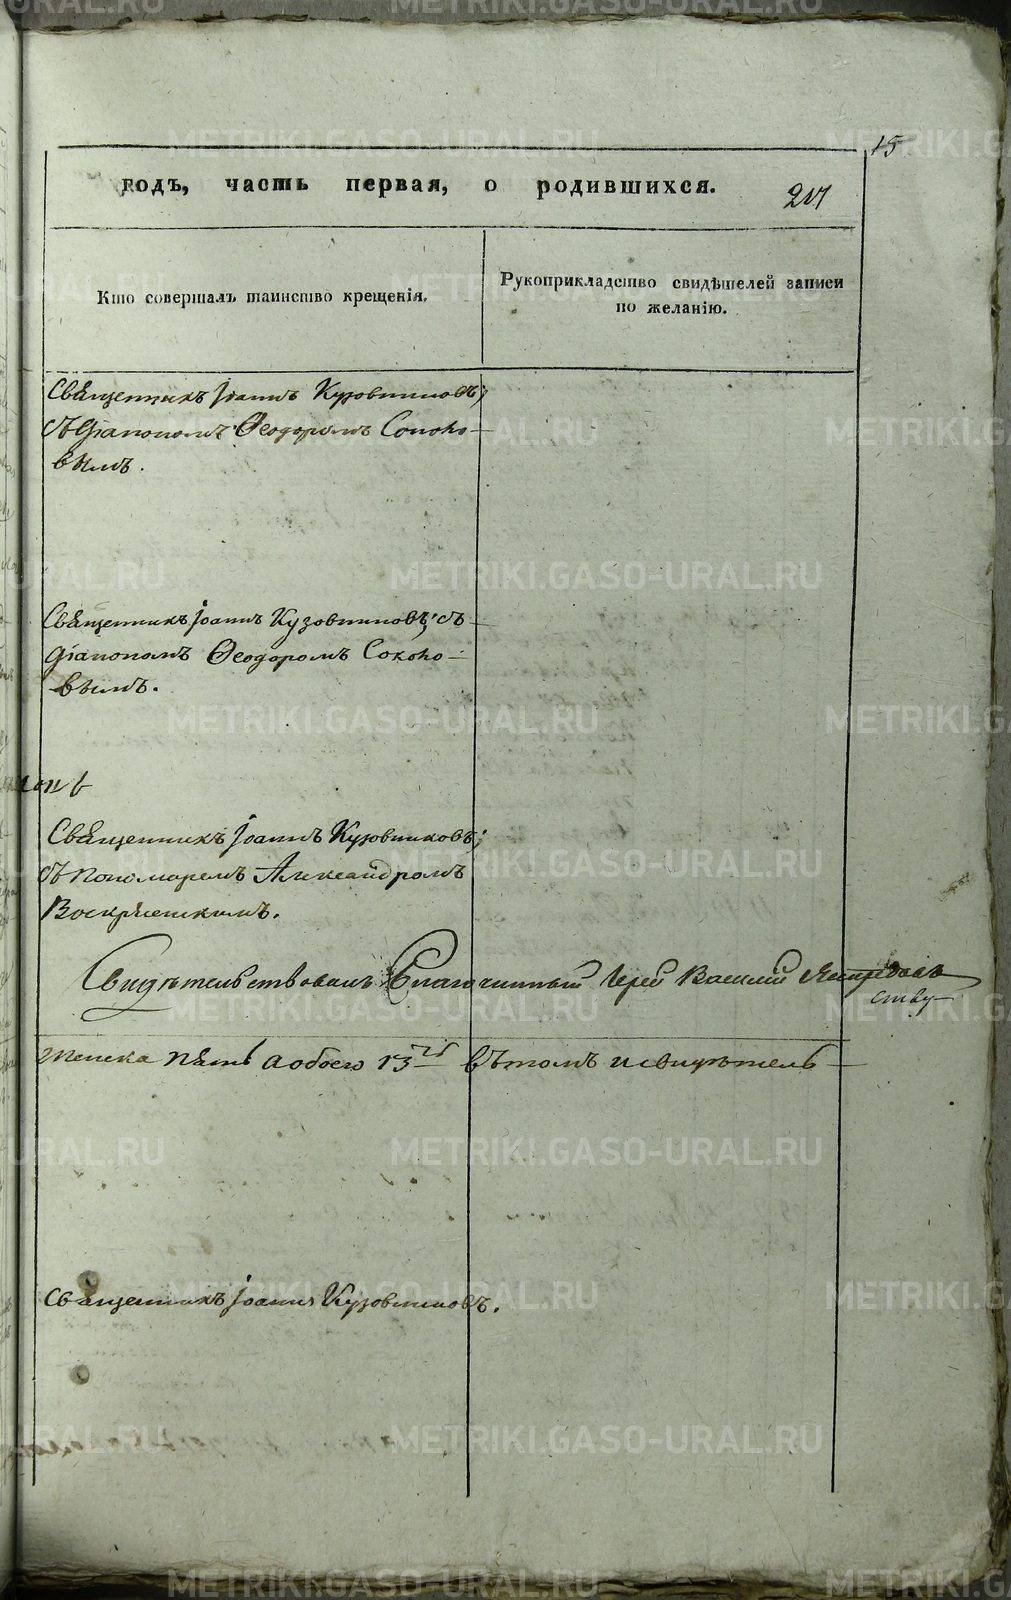 15
годъ, часть первая, о родившихся.
217
Кто совершалъ таинство крещенія.
Рукоприкладство свидѣтелей записи
по желанію.
Священникъ Іоаннъ Кузовниковъ;
съ Діакономъ Ѳеодоромъ Соколо-
вымъ.
Священникъ Іоаннъ Кузовниковъ; съ
Діакономъ Ѳеодоромъ Соколо-
вымъ.
Священникъ Іоаннъ Кузовниковъ;
съ пономаремъ Александромъ
Воскресенскимъ.
Свидѣтельствовалъ Благочинный Іерей Василій
женска пять а обоего 13 въ томъ и свидѣтель-
ству
Священникъ Іоаннъ Кузовниковъ.
METRIKI.GASO-URAL.RU